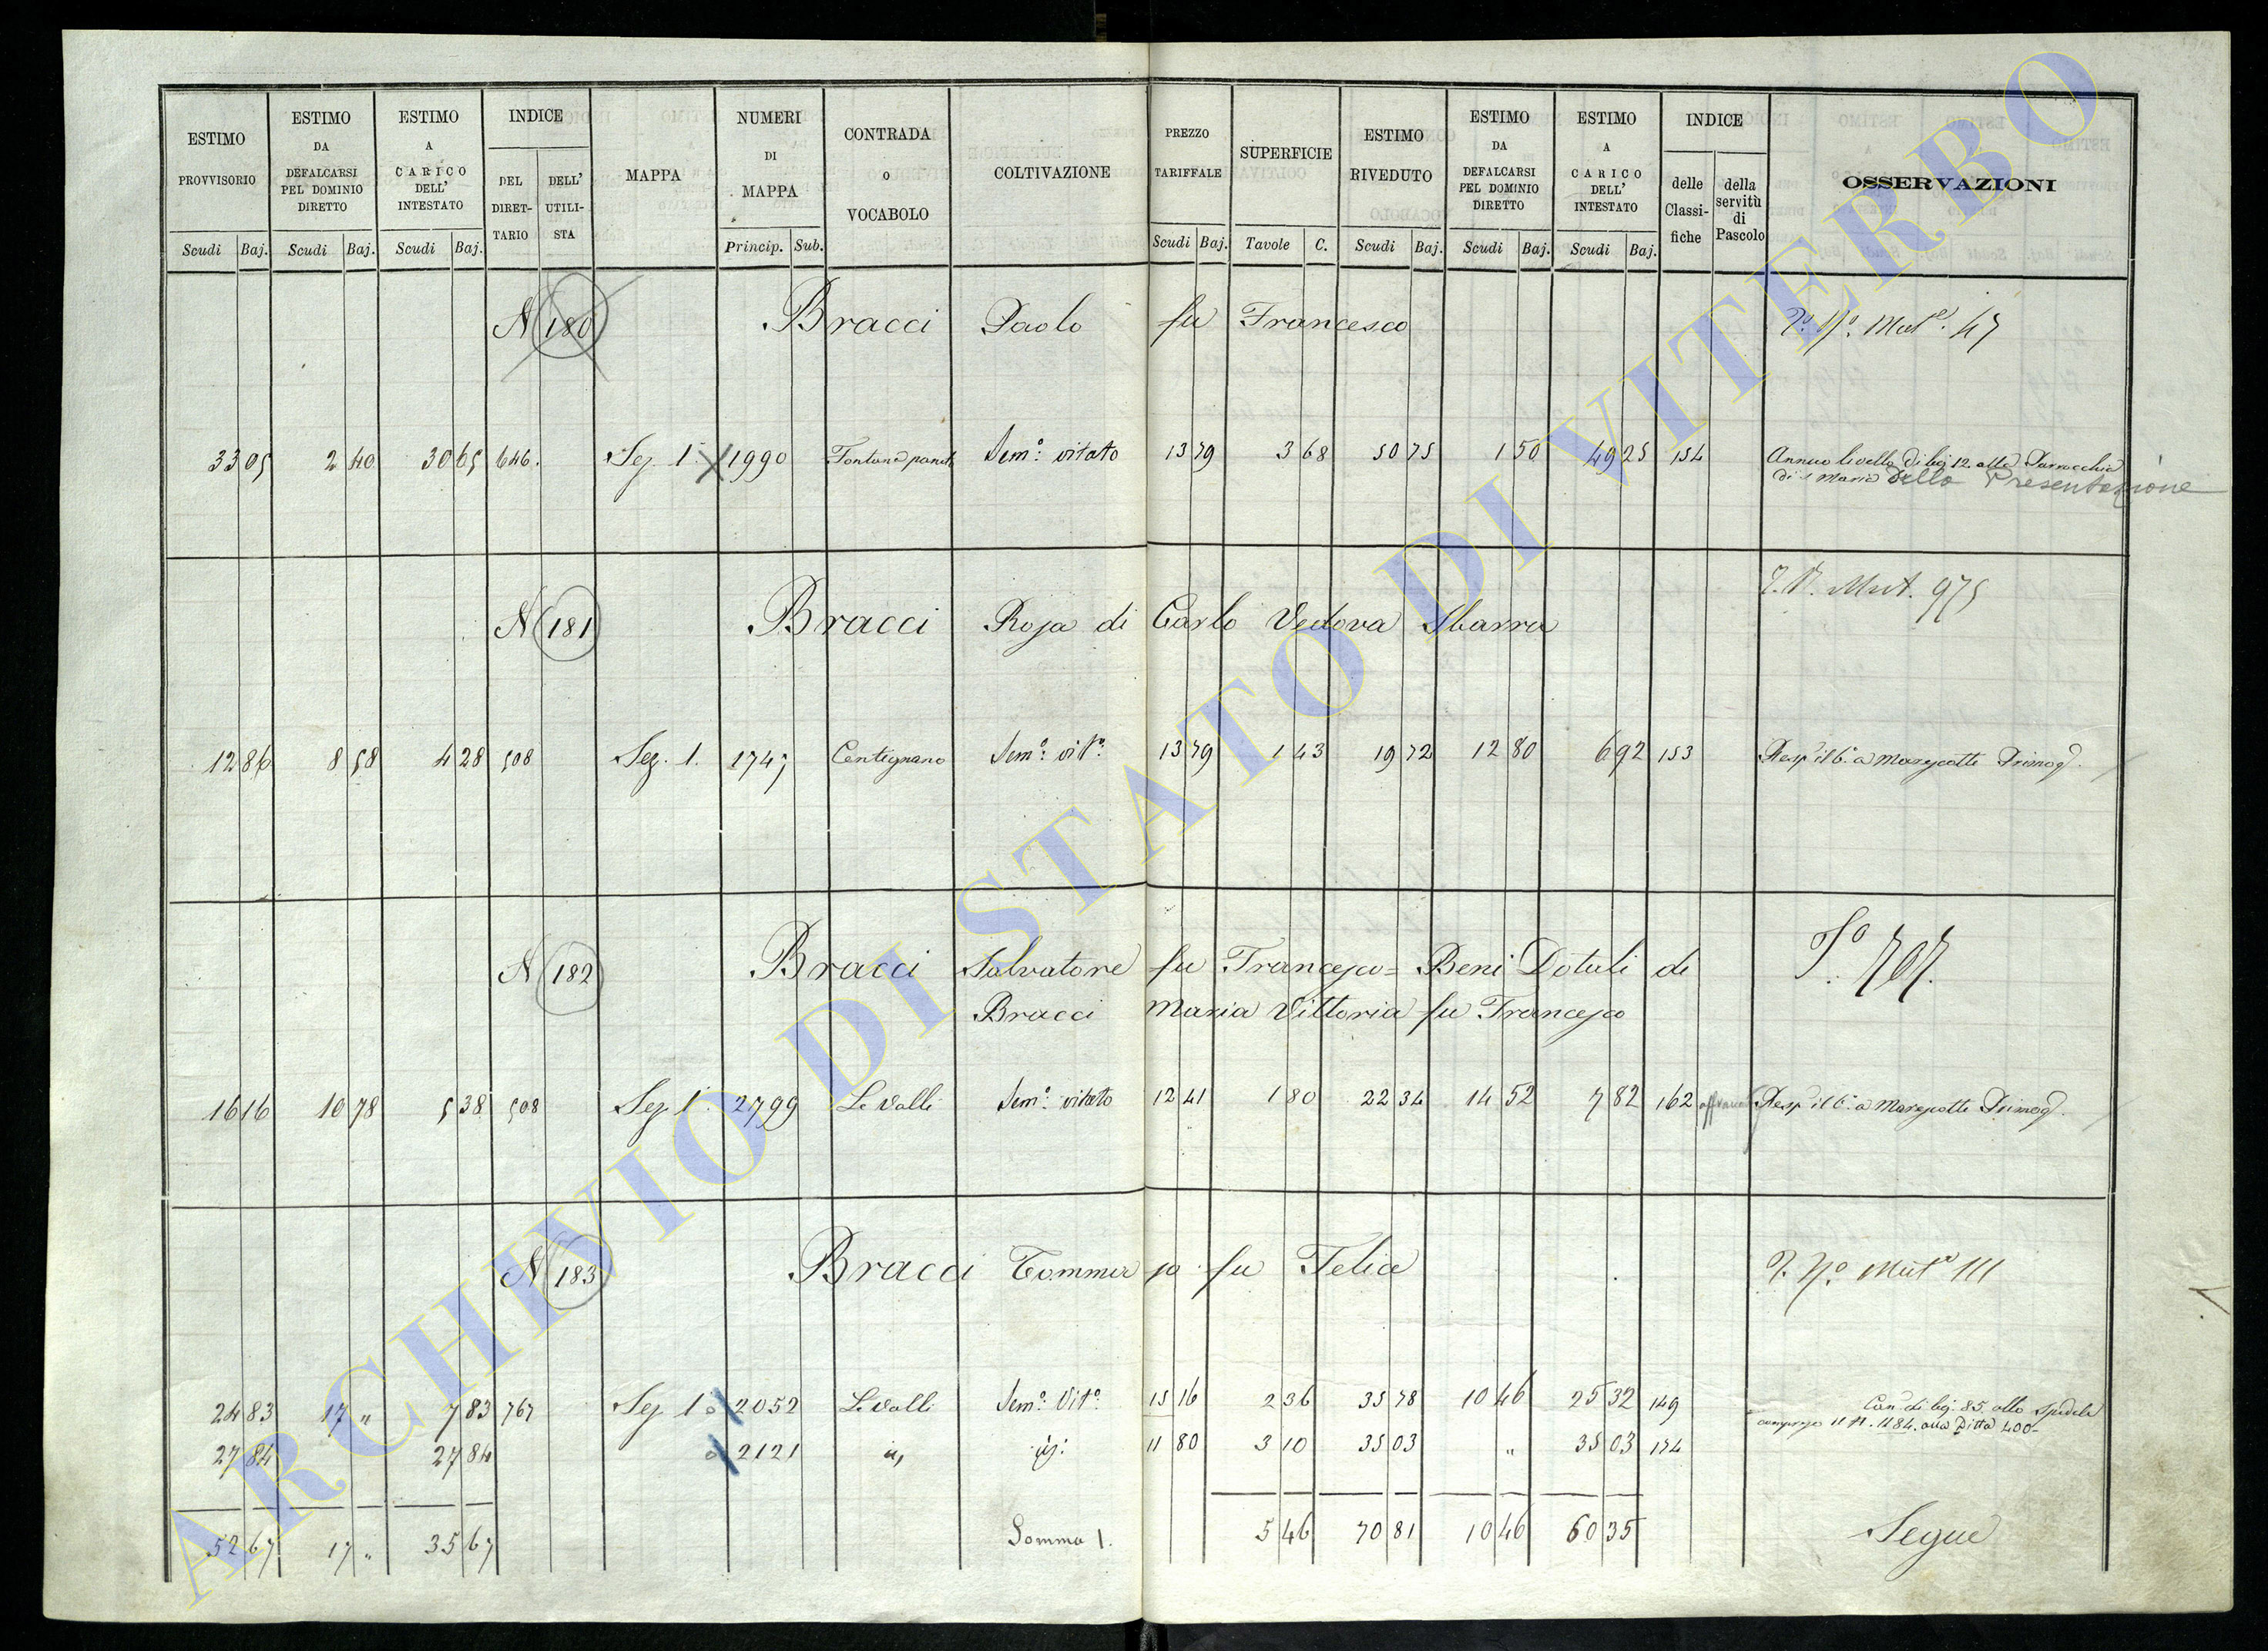 ESTIMO PROVVISORIO Scudi Baj.
ESTIMO DA DEFALCARSI PEL DOMINIO DIRETTO Scudi Baj.
ESTIMO A CARICO DELL' INTESTATO Scudi Baj.
INDICE DEL DIRETTARIO DELL' UTILISTA
MAPPA
NUMERI DI MAPPA Princip. Sub.
CONTRADA o VOCABOLO
COLTIVAZIONE
PREZZO TARIFFALE Scudi Baj.
SUPERFICIE Tavole C.
ESTIMO RIVEDUTO Scudi Baj.
ESTIMO DA DEFALCARSI PEL DOMINIO DIRETTO Scudi Baj.
ESTIMO A CARICO DELL' INTESTATO Scudi Baj.
INDICE delle Classifiche della servitù di Pascolo
OSSERVAZIONI
N 180 Bracci Paolo fu Francesco Mut. 47
33 05 2 40 30 65 646. Sez. 1. 1990 Fontana Sem.o vitato 13 79 3 68 50 75 1 50 49 25 154 Annuo livello di baj 12. alla Parrocchia
di S Maria Della Presentazione
N 181 Bracci Rosa di Carlo Vedova Sbarra Mut. 975
12 86 8 58 4 28 508 Sez. 1. 1745 Centignano Sem.o vit.o 13 79 1 43 19 72 12 80 6 92 153 Resp il 6.o a Marescotti Primog.
N 182 Bracci Salvatore fu Francesco = Beni Dotali di 707.
Bracci Maria Vittoria fu Francesco
16 16 10 78 5 38 508 Sez 1. 2799 Le Valli Sem.o vitato 12 41 1 80 22 34 14 52 7 82 162 Resp il 6.o a Marescotti Primog.
N 183 Bracci Tommaso fu Felice Mut.e 111
24 83 17 " 7 83 767 Sez 1 2052 Le Valli Sem.o Vit.o 15 16 2 36 35 78 10 46 25 32 149 Can. di baj. 85. allo Spedale
compreso il N. 1184. alla Ditta 400-
27 84 27 84 2121 11 80 3 10 35 03 " 35 03 154
52 67 17 " 35 67 Somma 1. 5 46 70 81 10 46 60 35 Segue
ARCHIVIO DI STATO DI VITERBO